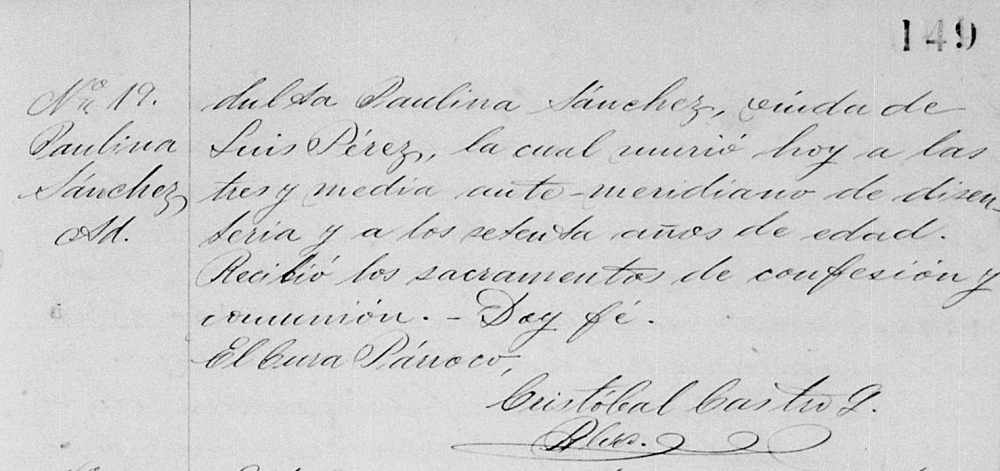 149
No. 19.
Paulina
Sánchez
Ad.
dulta Paulina Sánchez, viuda de
Luis Pérez, la cual murió hoy a las
tres y media ante-meridiano de disen-
teria y a los setenta años de edad.
Recibió los sacramentos de confesión y
comunión. - Doy fé.
El Cura Párroco,
Cristóbal Castro G.
Pbro.